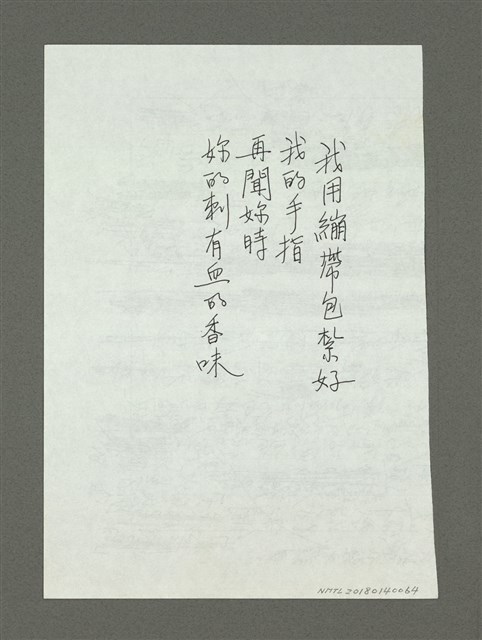 我用繃帶包紮好
我的手指
再聞妳時
妳的刺有血的香味
NMTL20180140064